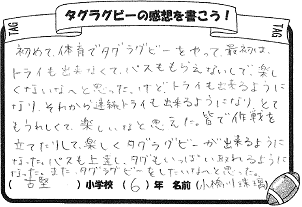 タグラグビーの感想を書こう！
TAG
TAG
初めて、体育でタグラグビーをやって、最初は、
トライも出来なくて、パスももらえないしで、楽し
くないなへと思った。けどトライも出来るように
なり、それから連続トライも出来るようになり、とて
もうれしくて、楽しいなと思えた。皆で作戦を
立てたりして、楽しくタグラグビーが出来るように
なった。パスも上達し、タグもいっぱい取れるように
なった。また、タグラグビーをしたいなへと思った。
(古堅)小学校 (6)年 名前(小橋川)